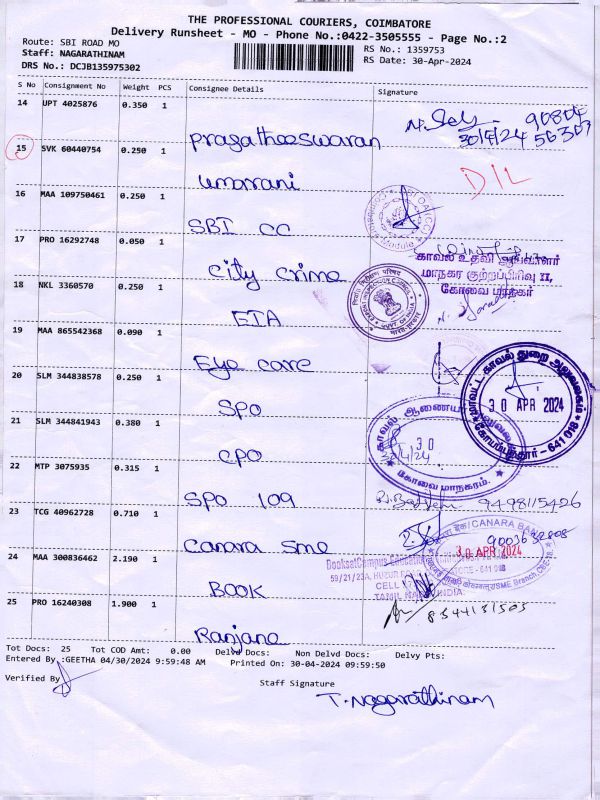 THE PROFESSIONAL COURIERS, COIMBATORE
Delivery Runsheet - MO - Phone No.:0422-3505555 - Page No.:2
Route: SBI ROAD MO
Staff: NAGARATHINAM
DRS No.: DCJB135975302
RS No.: 1359753
RS Date: 30-Apr-2024
S No Consignment No Weight PCS Consignee Details Signature
14 UPT 4025876 0.350 1 Pragatheeswaran
30/4/24
15 SVK 60440754 0.250 1 Umarani
DIL
16 MAA 109750461 0.250 1 SBI CC
17 PRO 16292748 0.050 1 City Crime
காவல் உதவி ஆய்வாளர்
மாநகர குற்றப்பிரிவு II,
கோவை மாநகர்
18 NKL 3360570 0.250 1 EIA
19 MAA 865542368 0.090 1 Eye care
20 SLM 344838578 0.250 1 SPO
மாவட்ட காவல் துறை அலுவலகம்
30 APR 2024
கோயம்புத்தூர் - 641 018
21 SLM 344841943 0.380 1 CPO
காவல் ஆணையர் அலுவலகம்
30
கோவை மாநகரம்.
22 MTP 3075935 0.315 1 SPO 109
9498115426
23 TCG 40962728 0.710 1 Canara sme
CANARA BANK
30 APR 2024
SME Branch, CBE-18
24 MAA 300836462 2.190 1 BOOK
BooksatCampus Education
59/21/23A, HUZUR
CELL
TAMIL NADU INDIA
25 PRO 16240308 1.900 1 Ranjana
8344131505
Tot Docs: 25 Tot COD Amt: 0.00 Delvd Docs: Non Delvd Docs: Delvy Pts:
Entered By :GEETHA 04/30/2024 9:59:48 AM Printed On: 30-04-2024 09:59:50
Verified By
Staff Signature
T. Nagarathinam